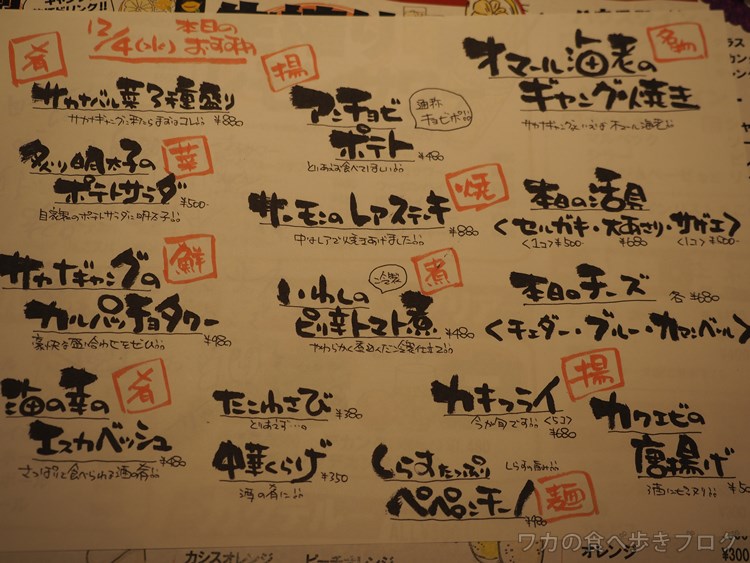 12/4(水) 本日のおすすめ
肴
サカナバル菜3種盛り
サカナギャングに来たらまずはコレ!! ¥880
菜
炙り明太子の
ポテトサラダ
¥500
自家製のポテトサラダに明太子!!
鮮
サカナギャングの
カルパッチョタワー
豪快な盛り合わせをぜひ!! ¥980
肴
海の幸の
エスカベッシュ
さっぱりと食べられる酒の肴!! ¥480
揚
アンチョビ
ポテト
通称
チョビポ!!
とりあえず食べてほしい!! ¥480
焼
サーモンのレアステーキ
中はレアで焼きあげました!! ¥880
煮
冷製
いわしの
ピリ辛トマト煮
¥480
やわらかく煮込んだ冷製仕立て!!
たこわさび
¥380
とりあえず…の
中華くらげ
¥350
酒の肴に!!
名物
オマール海老の
ギャング焼き
サカナギャングといえばオマール海老!!
本日の活貝
<セルガキ・大あさり・サザエ>
<1コ>¥500 ¥680 <1コ>¥500
本日のチーズ
各¥680
<チェダー・ブルー・カマンベール>
揚
カキフライ
今が旬です!! <5コ>
¥680
カワエビの
唐揚げ
酒にピッタリ!!
しらすたっぷり
ペペロンチーノ
麺
¥980
カシスオレンジ
ピーチオレンジ
オレンジ
¥300
ワカの食べ歩きブログ